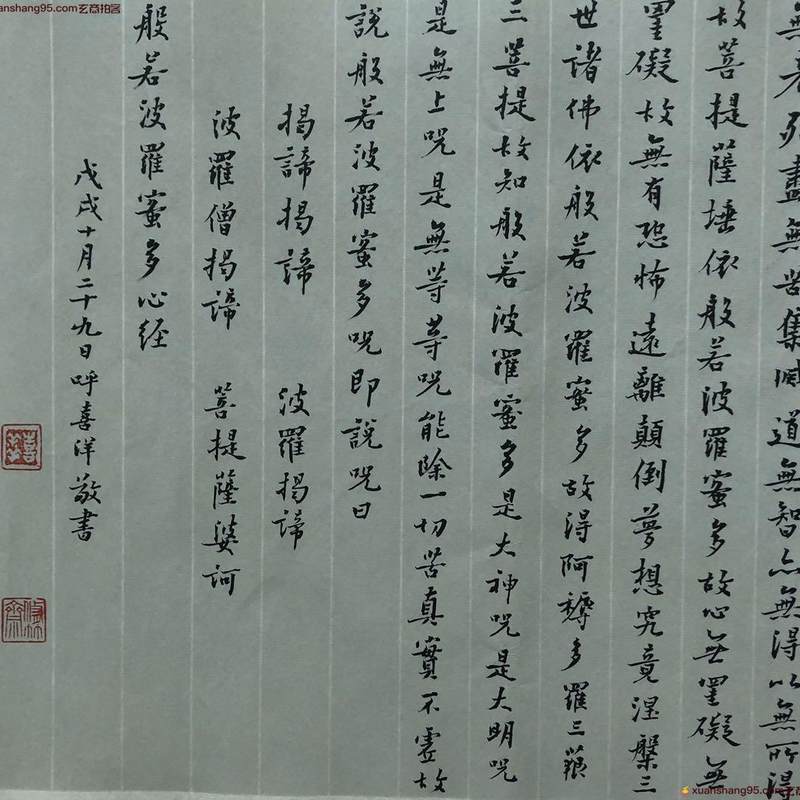 無老死盡無苦集滅道無智亦無得以無所得
故菩提薩埵依般若波羅蜜多故心無罣礙無
罣礙故無有恐怖遠離顛倒夢想究竟涅槃三
世諸佛依般若波羅蜜多故得阿耨多羅三藐
三菩提故知般若波羅蜜多是大神咒是大明咒
是無上咒是無等等咒能除一切苦真實不虛故
說般若波羅蜜多咒即說咒曰
揭諦揭諦 波羅揭諦
波羅僧揭諦 菩提薩婆訶
般若波羅蜜多心経
戊戌十月二十九日呼喜洋敬書
anshang95.com玄商拍客
xuanshang95.com玄商拍客